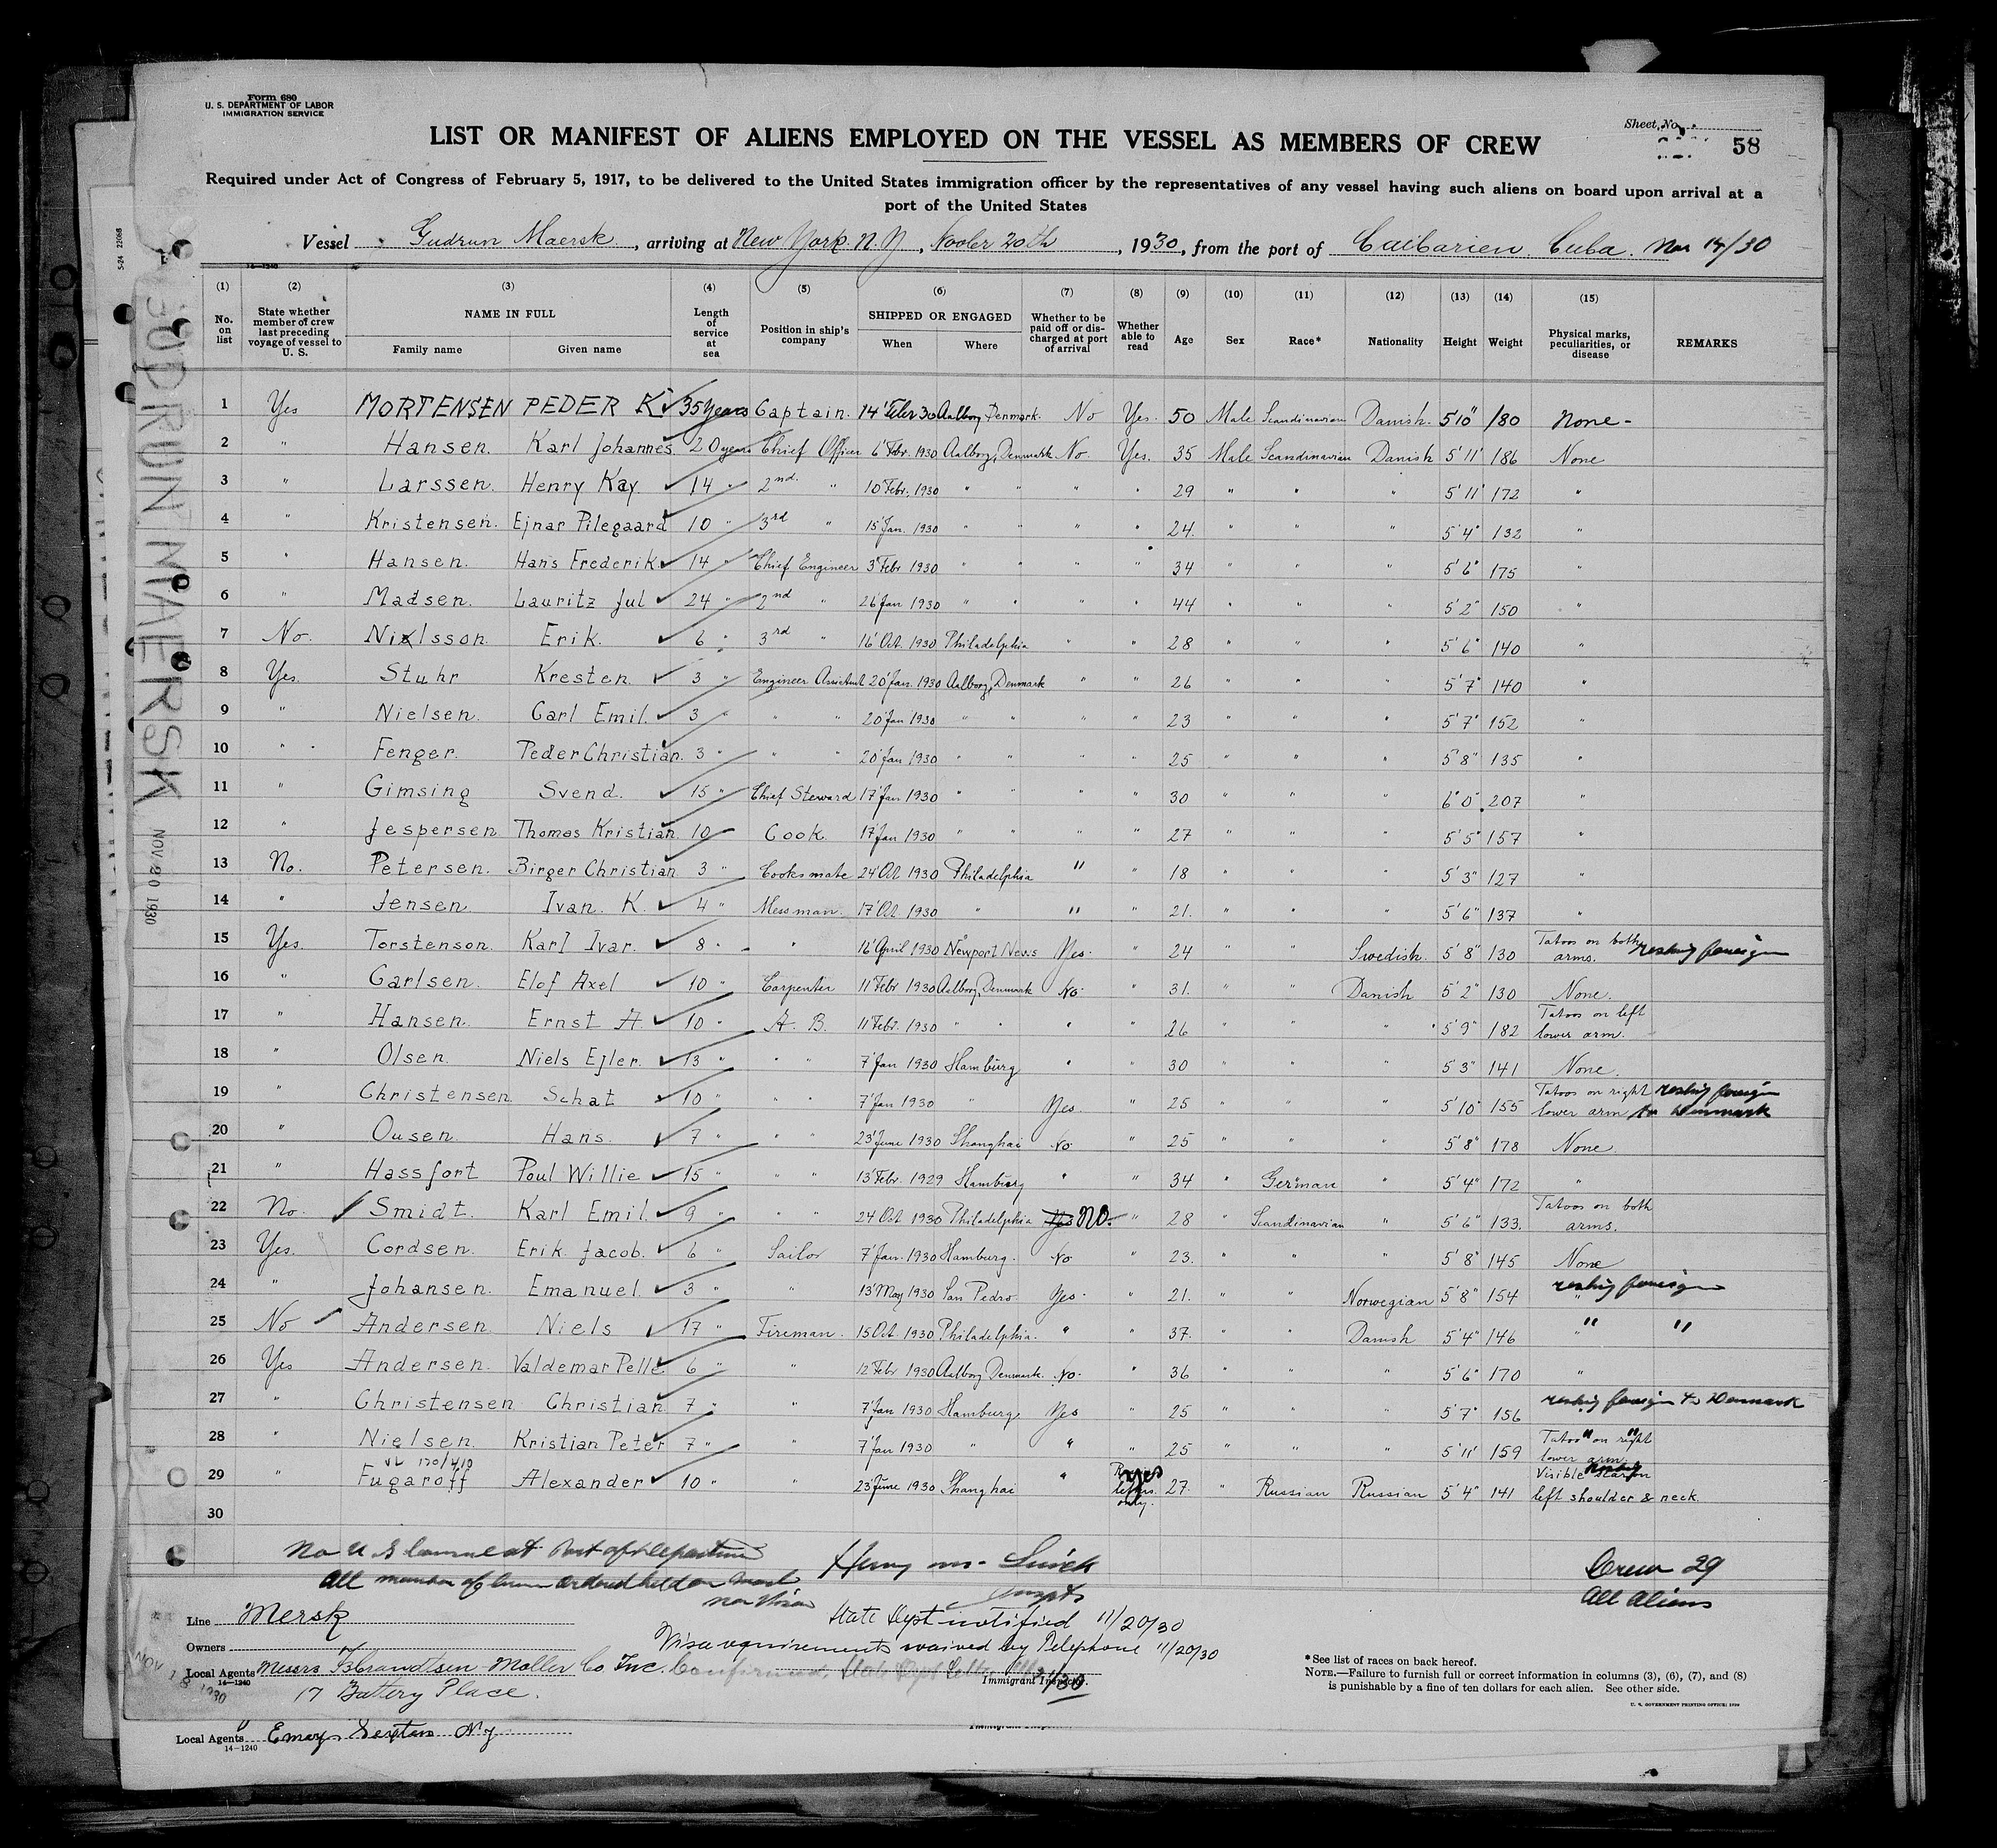 Form 680
U. S. DEPARTMENT OF LABOR
IMMIGRATION SERVICE
Sheet No.
58
LIST OR MANIFEST OF ALIENS EMPLOYED ON THE VESSEL AS MEMBERS OF CREW
Required under Act of Congress of February 5, 1917, to be delivered to the United States immigration officer by the representatives of any vessel having such aliens on board upon arrival at a
port of the United States
Vessel Gudrun Maersk, arriving at New York. N.Y, Novber 20th, 1930, from the port of Caibarien. Cuba. Nov 14/30
14-1240
(1) (2) (3) (4) (5) (6) (7) (8) (9) (10) (11) (12) (13) (14) (15)
No. on list State whether member of crew last preceding voyage of vessel to U. S. NAME IN FULL Family name Given name Length of service at sea Position in ship's company SHIPPED OR ENGAGED When Where Whether to be paid off or discharged at port of arrival Whether able to read Age Sex Race* Nationality Height Weight Physical marks, peculiarities, or disease REMARKS
1 Yes MORTENSEN PEDER K. 35 Years Captain. 14' Febr 30 Aalborg, Denmark. No Yes. 50 Male Scandinavian Danish. 5'10" 180 None -
2 " Hansen. Karl Johannes. 20 years Chief Officer 6' Febr. 1930 Aalborg, Denmark No. Yes. 35 Male Scandinavian Danish 5'11" 186 None
3 " Larssen. Henry Kay 14 " 2nd. " 10 Febr. 1930 " " " " 29 " " " 5'11" 172 "
4 " Kristensen. Ejnar Pilegaard 10 " 3rd " 15' Jan. 1930 " " " " 24. " " " 5'4" 132 "
5 " Hansen. Hans Frederik 14 " Chief Engineer 3' Febr 1930 " " " " 34 " " " 5'6" 175 "
6 " Madsen. Lauritz Jul 24 " 2nd " 26' Jan 1930 " " " " 44 " " " 5'2" 150 "
7 No. Nielsson. Erik. 6 " 3rd " 16' Oct. 1930 Philadelphia " " 28 " " " 5'6" 140 "
8 Yes. Stuhr Kresten. 3 " Engineer Assistent 20' Jan. 1930 Aalborg, Denmark " " 26 " " " 5'7" 140 "
9 " Nielsen. Carl Emil. 3 " " " 20' Jan 1930 " " " " 23 " " " 5'7" 152 "
10 " Fenger. Peder Christian. 3 " " " 20' Jan 1930 " " " " 25 " " " 5'8" 135 "
11 " Gimsing Svend. 15 " Chief Steward 17' Jan 1930 " " " " 30 " " " 6'0" 207 "
12 " Jespersen Thomas Kristian. 10 Cook. 17' Jan 1930 " " " " 27 " " " 5'5" 157 "
13 No. Petersen. Birger Christian 3 " Cooks mate 24' Oct 1930 Philadelphia " " 18 " " " 5'3" 127 "
14 " Jensen. Ivan. K. 4 " Messman. 17' Oct. 1930 " " " 21. " " " 5'6" 137 "
15 Yes. Torstenson. Karl Ivar. 8 " " 16' April 1930 Newport News Yes. " 24 " " Swedish. 5'8" 130 Tatoos on both arms. reship foreign
16 " Carlsen. Elof Axel 10 " Carpenter 11' Febr 1930 Aalborg, Denmark No. " 31. " " Danish 5'2" 130 None.
17 " Hansen. Ernst A. 10 " A. B. 11 Febr. 1930 " " " " 26 " " " 5'9" 182 Tatoos on left lower arm.
18 " Olsen. Niels Ejler. 13 " " " 7' Jan 1930 Hamburg " " 30 " " " 5'3" 141 None.
19 " Christensen Schat 10 " " " 7' Jan 1930 " Yes. " 25 " " " 5'10" 155 Tatoos on right lower arm reship foreign to Denmark
20 " Ousen. Hans. 7 " " " 23' June 1930 Shanghai No. " 25 " " " 5'8" 178 None.
21 " Hassfort Poul Willie 15 " " " 13' Febr. 1929 Hamburg " " 34 " German " 5'4" 172 "
22 No. Smidt. Karl Emil. 9 " " " 24 Oct 1930 Philadelphia Yes No. " 28 " Scandinavian " 5'6" 133. Tatoos on both arms.
23 Yes. Cordsen. Erik Jacob. 6 " Sailor 7' Jan. 1930 Hamburg. No " 23. " " " 5'8" 145 None
24 " Johansen. Emanuel. 3 " " 13' May 1930 San Pedro. Yes. " 21. " " Norwegian 5'8" 154 " reship foreign
25 No Andersen. Niels 17 " Fireman. 15 Oct. 1930 Philadelphia. " " 37. " " Danish 5'4" 146 " " "
26 Yes Andersen. Valdemar Pelle 6 " " 12 Febr 1930 Aalborg Denmark. No. " 36 " " " 5'6" 170 "
27 " Christensen Christian 7 " " 7' Jan 1930 Hamburg. Yes " 25 " " " 5'7" 156 reship foreign to Denmark
28 " Nielsen. Kristian Peter 7 " " 7' Jan 1930 " " " 25 " " " 5'11" 159 Tatoo on right lower arm " "
29 " Fugaroff Alexander 10 " " 23' June 1930 Shanghai " yes 27. " Russian Russian 5'4" 141 Visible scar on left shoulder & neck.
30
No U S Consul at Port of Departure
All member of crew ordered held on board
non Visa
Henry M. Smith
Inspt
Crew 29
All Aliens
State Dept notified 11/20/30
Visa requirements waived by Telephone 11/20/30
Line Mersk
Owners
Local Agents Messrs F. Brandtsen Moller Co Inc.
14-1240
17 Battery Place.
Immigrant Inspector.
*See list of races on back hereof.
NOTE.—Failure to furnish full or correct information in columns (3), (6), (7), and (8)
is punishable by a fine of ten dollars for each alien. See other side.
U. S. GOVERNMENT PRINTING OFFICE: 1930
Local Agents Emery Sexton N.Y
14-1240
GUDRUN MAERSK
NOV 20 1930